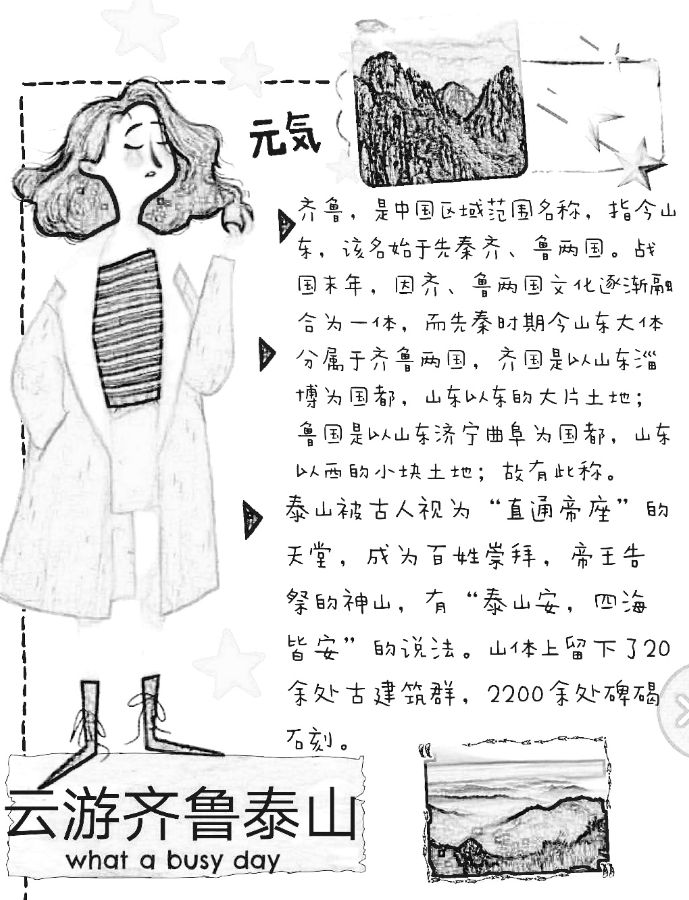 元気
齐鲁，是中国区域范围名称，指今山
东，该名始于先秦齐、鲁两国。战
国末年，因齐、鲁两国文化逐渐融
合为一体，而先秦时期今山东大体
分属于齐鲁两国，齐国是以山东淄
博为国都，山东以东的大片土地；
鲁国是以山东济宁曲阜为国都，山东
以西的小块土地；故有此称。
泰山被古人视为“直通帝座”的
天堂，成为百姓崇拜，帝王告
祭的神山，有“泰山安，四海
皆安”的说法。山体上留下了20
余处古建筑群，2200余处碑碣
石刻。
云游齐鲁泰山
what a busy day